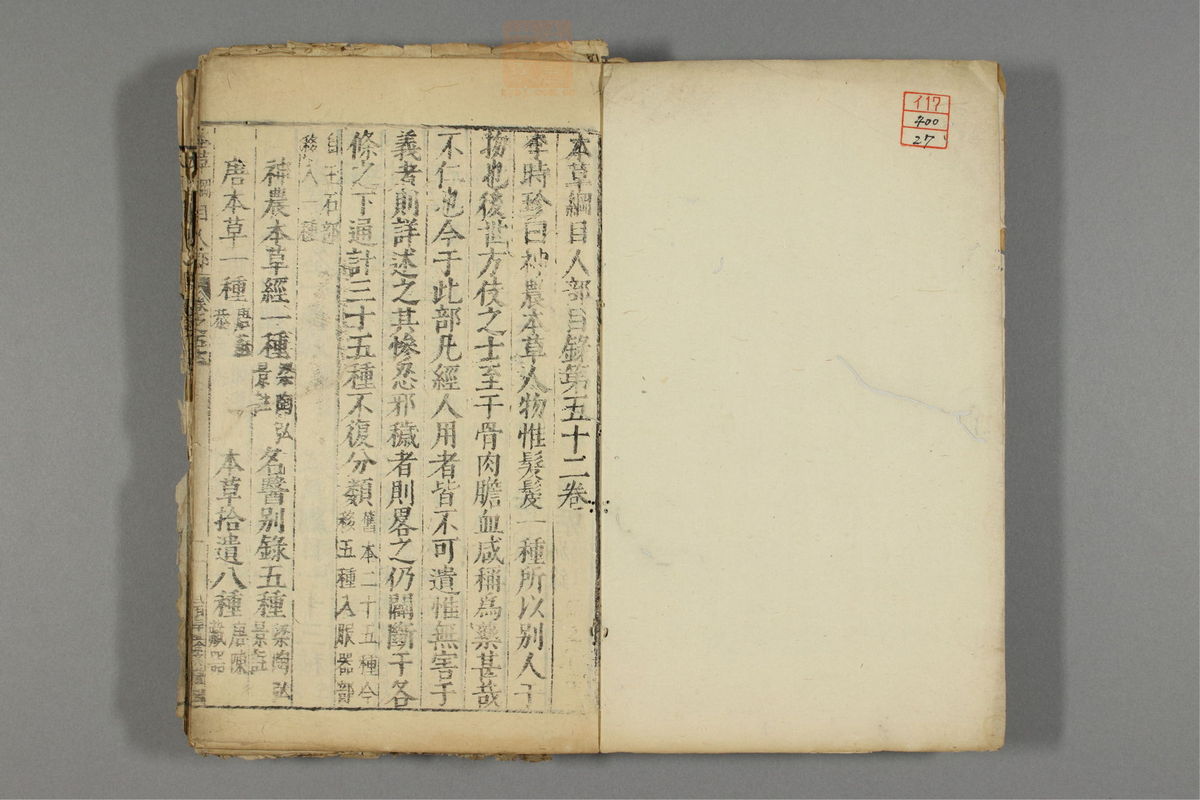 117
400
27
本草綱目人部目錄第五十二卷
李時珍曰神農本草人物惟髮髲一種所以別人于
物也後世方伎之士至于骨肉膽血咸稱爲藥甚哉
不仁也今于此部凡經人用者皆不可遺惟無害于
義者則詳述之其慘忍邪穢者則畧之仍闢斷于各
條之下通計三十五種不復分類舊本二十五種今
移五種入服器部
自玉石部
移入一種
神農本草經一種梁陶弘景註 名醫別錄五種梁陶弘景註
唐本草一種唐蘇恭 本草拾遺八種唐陳藏器